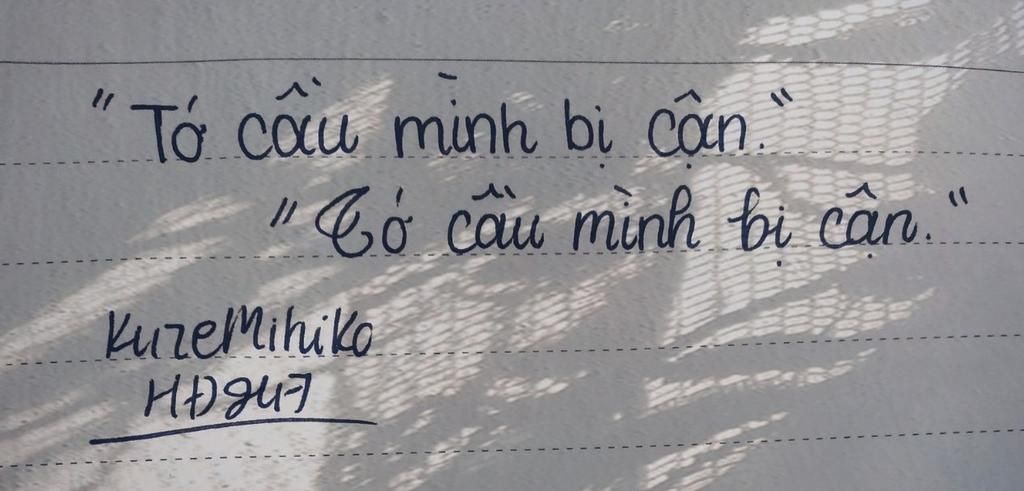 "Tớ cầu mình bị cận."
"Tớ cầu mình bị cận."
KuzeMihiko
HĐ947